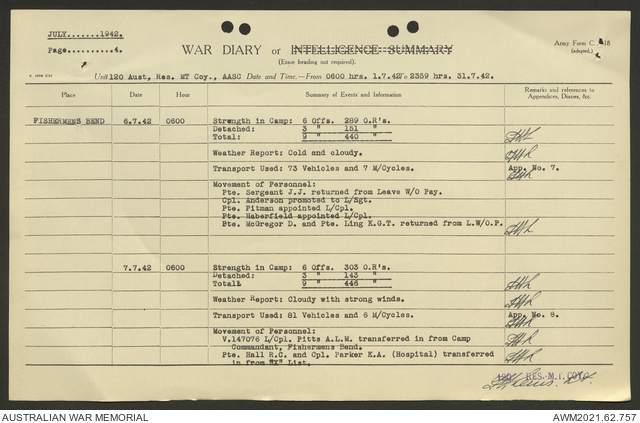 JULY.......1942.
Page..........4.
WAR DIARY or INTELLIGENCE SUMMARY
(Erase heading not required).
Army Form C.
(adapted.)
Unit 120 Aust, Res. MT Coy., AASC Date and Time.—From 0600 hrs. 1.7.42 To 2359 hrs. 31.7.42.
Place Date Hour Summary of Events and Information Remarks and references to Appendices, Diaries, &c.
FISHERMENS BEND 6.7.42 0600 Strength in Camp: 6 Offs. 289 O.R's.
Detached: 3 " 151 "
Total: 9 " 440 "
Weather Report: Cold and cloudy.
Transport Used: 73 Vehicles and 7 M/Cycles. App. No. 7.
Movement of Personnel:
Pte. Sergeant J.J. returned from Leave W/O Pay.
Cpl. Anderson promoted to L/Sgt.
Pte. Pitman appointed L/Cpl.
Pte. Haberfield appointed L/Cpl.
Bte. McGregor D. and Pte. Ling K.G.T. returned from L.W/O.P.
7.7.42 0600 Strength in Camp: 6 Offs. 303 O.R's.
Detached: 3 " 143 "
Total: 9 " 446 "
Weather Report: Cloudy with strong winds.
Transport Used: 81 Vehicles and 6 M/Cycles. App. No. 8.
Movement of Personnel:
V.147076 L/Cpl. Pitts A.L.M. transferred in from Camp
Commandant, Fishermens Bend.
Pte. Hall R.C. and Cpl. Parker K.A. (Hospital) transferred
in from "X" List.
RES. M.T. COY.
AUSTRALIAN WAR MEMORIAL AWM2021.62.757